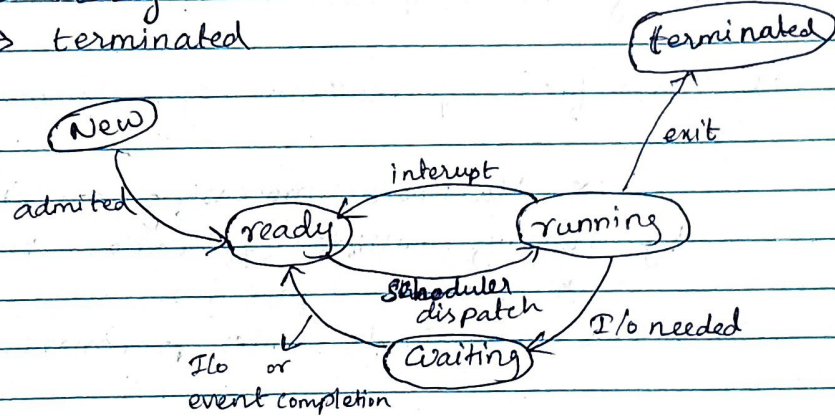 → terminated
terminated
New
exit
interupt
admited
ready
running
Scheduler
dispatch
I/o needed
waiting
I/o or
event completion